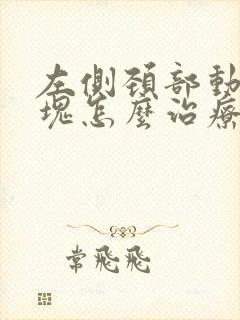 左側頚部動
塊怎麼治療
常飛飛